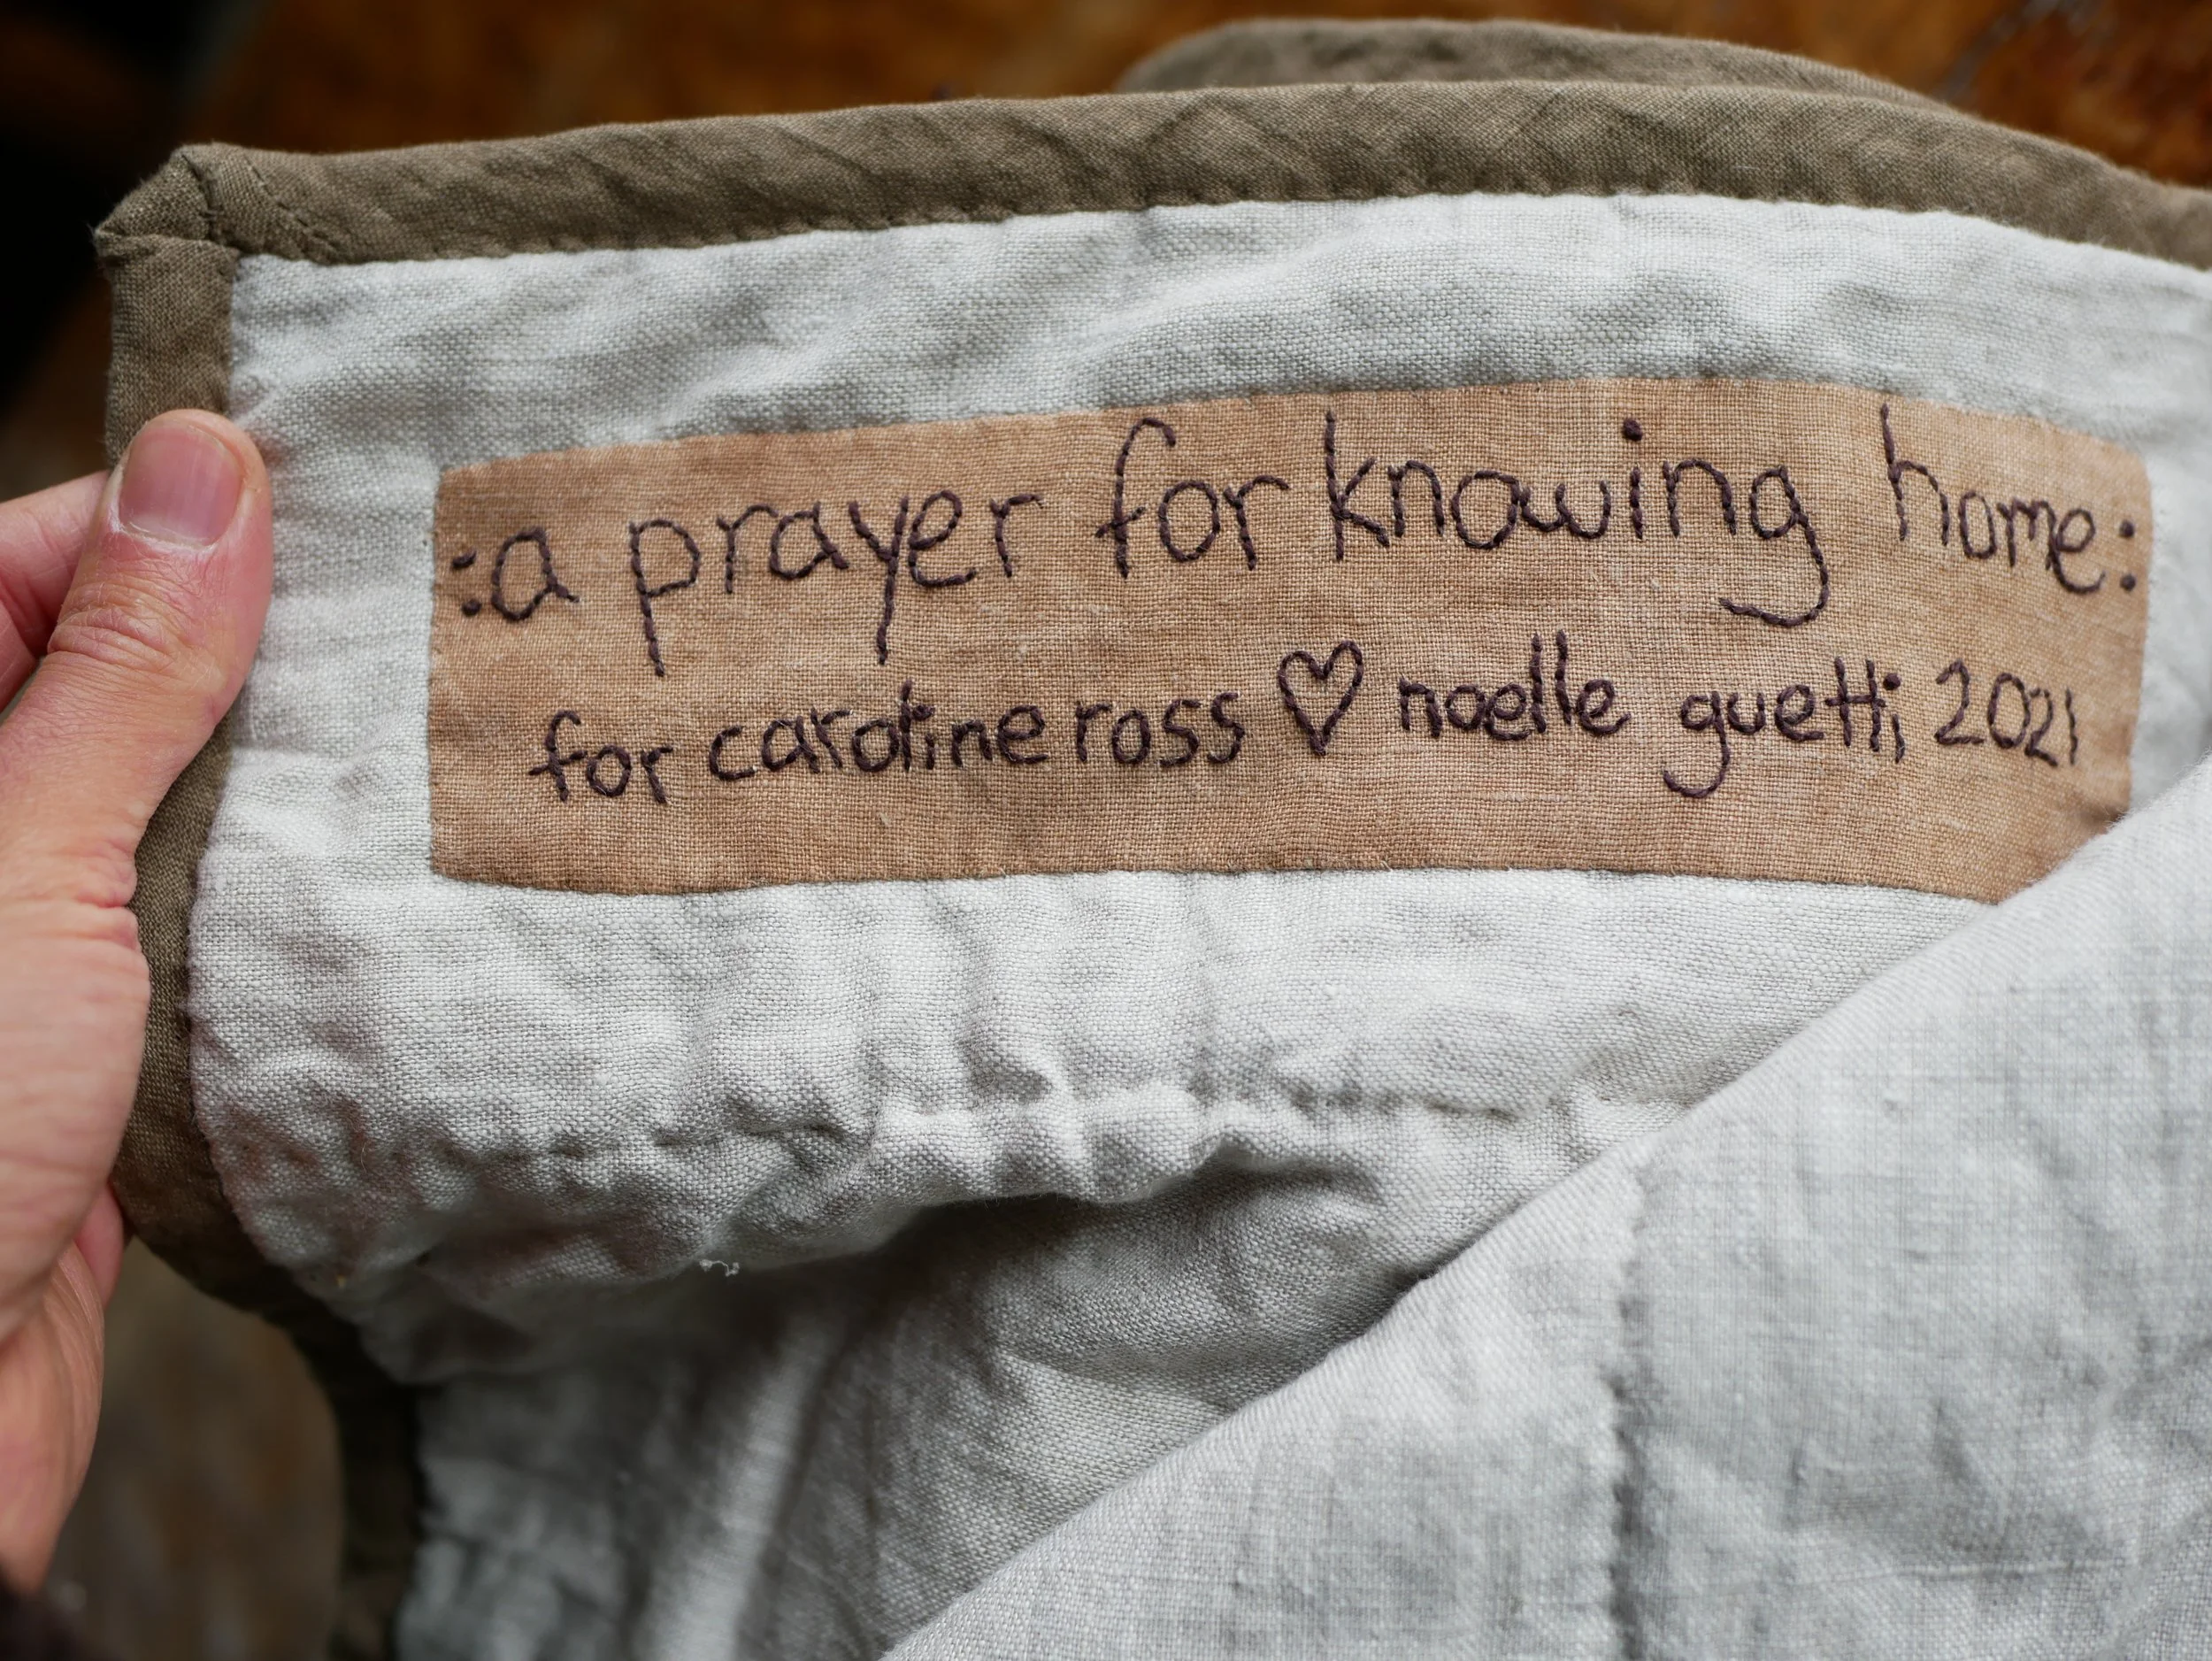 :a prayer for knowing home:
for caroline ross ♡ noelle guetti, 2021